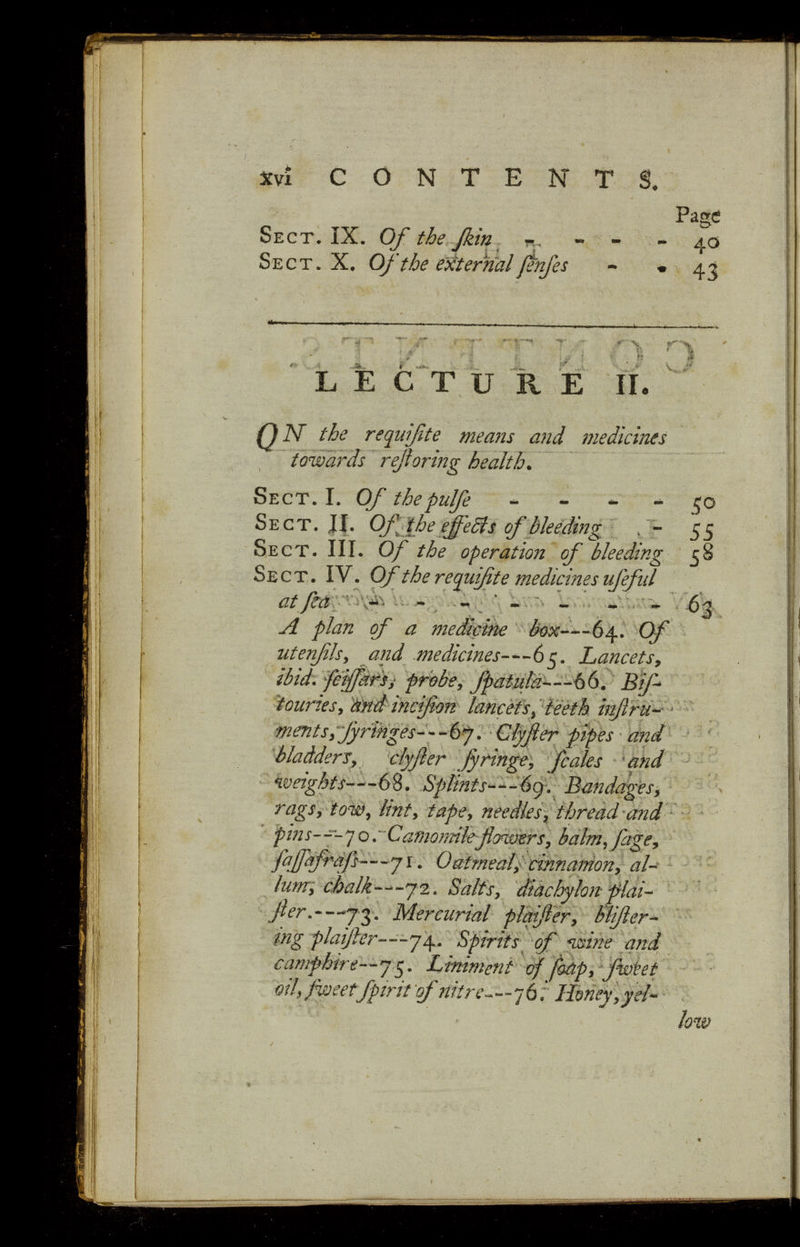 xvi CONTENTS.
Page
SECT. IX. Of the ſkin - - - - 40
SECT. X. Of the external ſenſes - - 43
LECTURE II.
ON the requiſite means and medicines
towards reſtoring health.
SECT. I. Of the pulſe - - - - 50
SECT. II. Of the effects of bleeding - 55
SECT. III. Of the operation of bleeding 58
SECT. IV. Of the requiſite medicines uſeful
at ſea - - - - - - 63
A plan of a medicine box---64. Of
utenſils, and medicines---65. Lancets,
ibid. ſciſſars, probe, ſpatula---66. Biſ-
touries, and inciſion lancets, teeth inſtru-
ments, ſyringes---67. Clyſter pipes and
bladders, clyſter ſyringe, ſcales and
weights---68. Splints---69. Bandages,
rags, tow, lint, tape, needles, thread and
pins---70. Camomile flowers, balm, ſage,
ſaſſafraſs---71. Oatmeal, cinnamon, al-
lum, chalk---72. Salts, diachylon plai-
ſter.---73. Mercurial plaiſter, bliſter-
ing plaiſter---74. Spirits of wine and
camphire--75. Liniment of ſoap, ſweet
oil, ſweet ſpirit of nitre---76. Honey, yel-
low